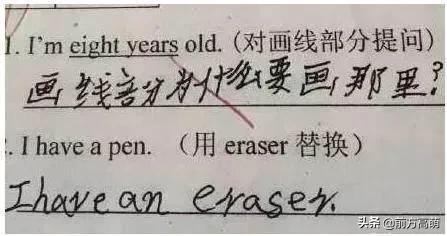 1. I'm eight years old. (对画线部分提问)
画线部分为什么要画那里?
. I have a pen. （用 eraser 替换）
I have an eraser.
头条 @前方高萌